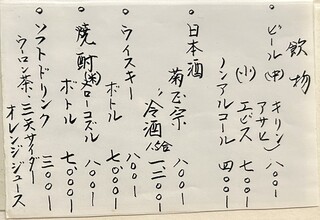 飲物
◦ビール(中) キリン アサヒ 八〇〇ー
(小) エビス 七〇〇ー
ノンアルコール 四〇〇ー
◦日本酒 菊正宗 八〇〇ー
〃 冷酒 一二〇〇ー
◦ウイスキー 八〇〇ー
ボトル 七、〇〇〇ー
◦焼酎(米) メローコズル 八〇〇ー
ボトル 七、〇〇〇ー
◦ソフトドリンク 三〇〇ー
ウーロン茶 三ツ矢サイダー
オレンジジュース